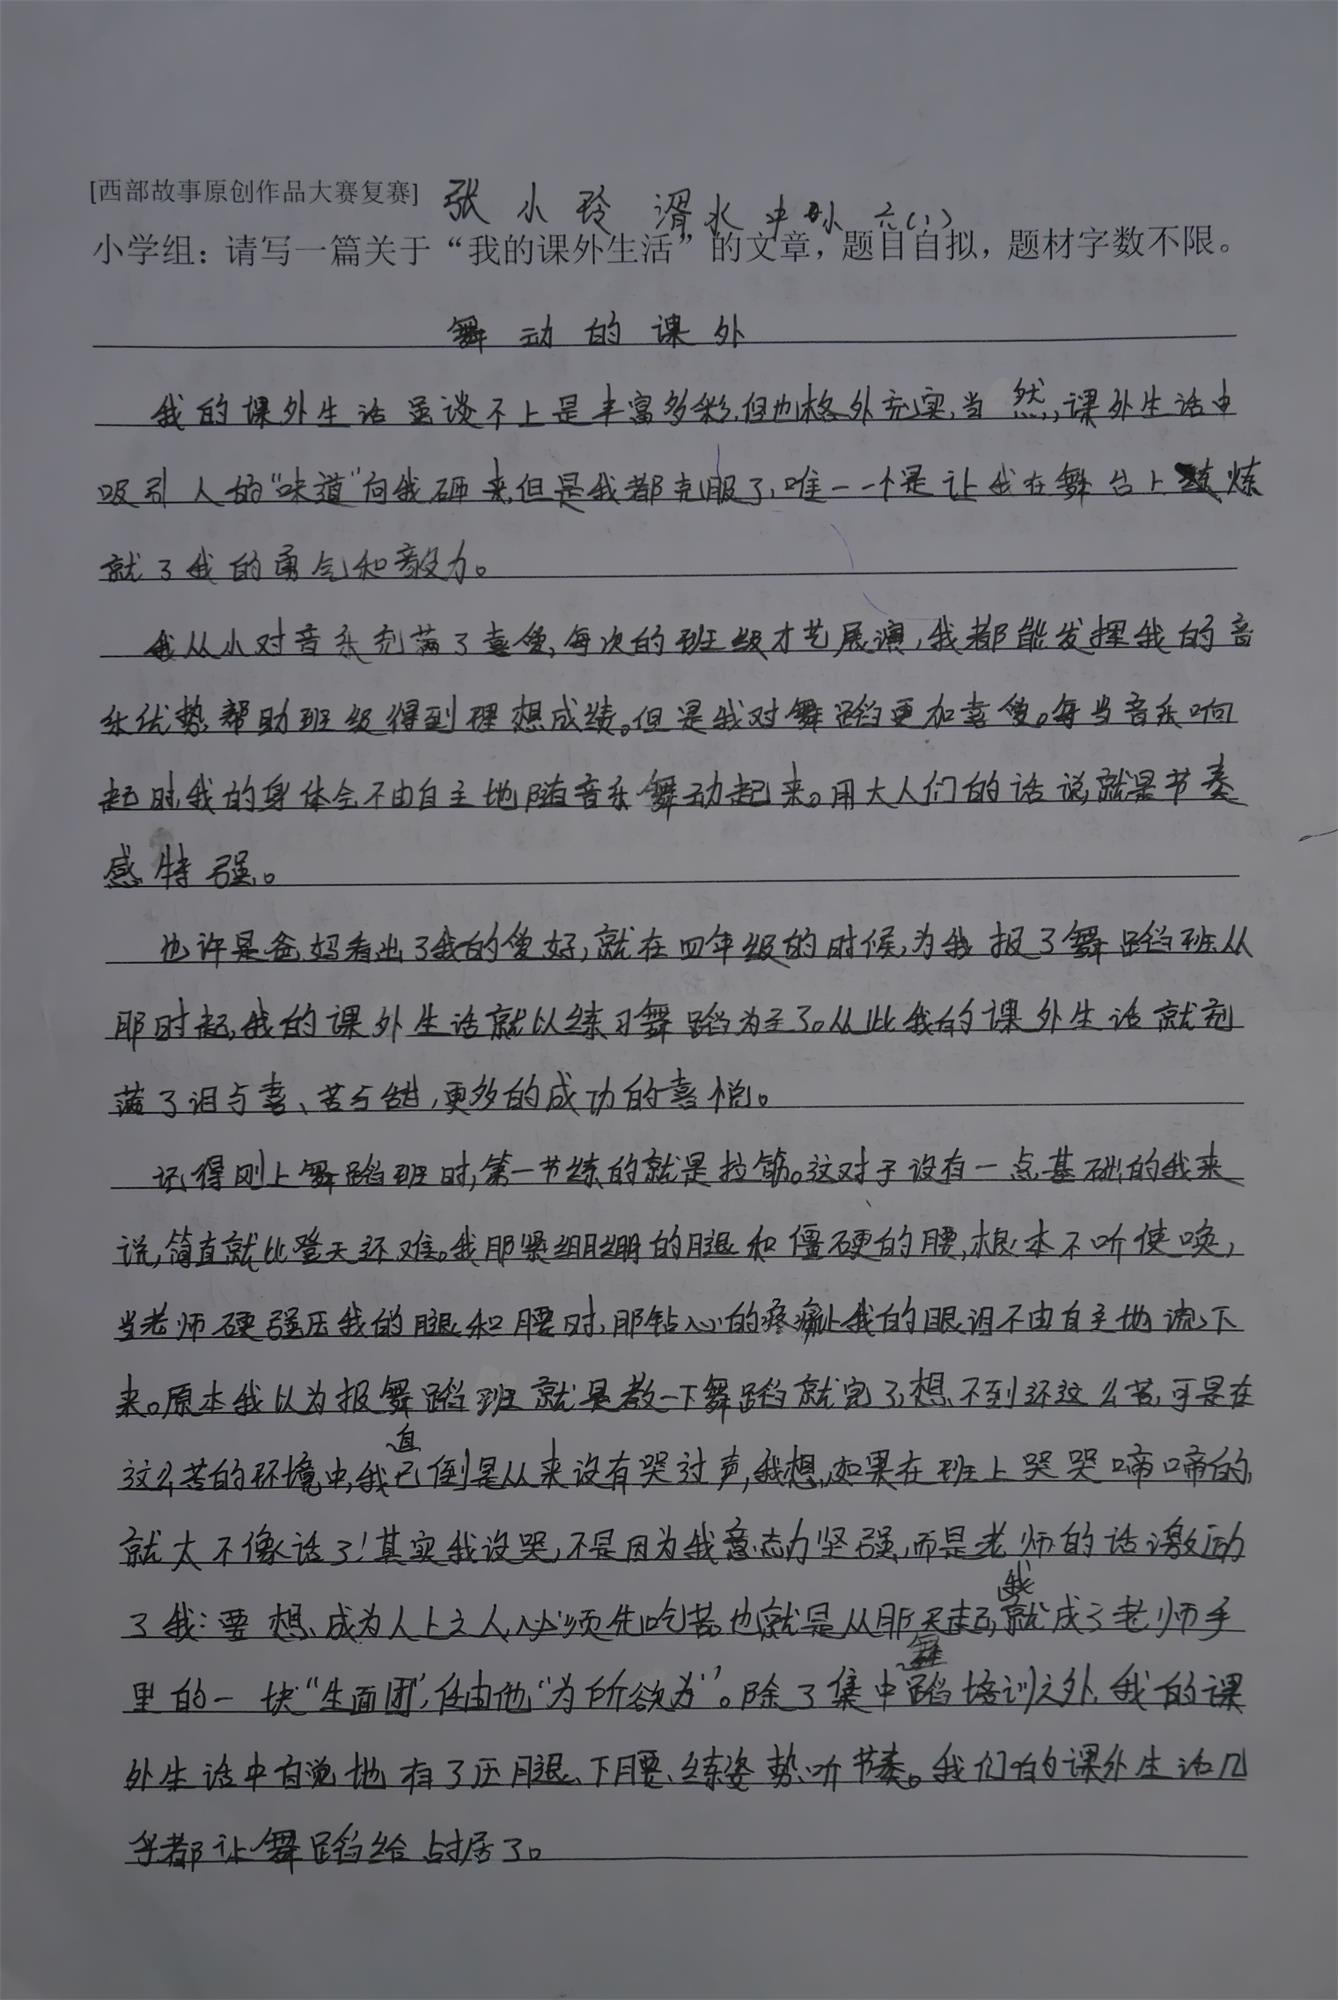 [西部故事原创作品大赛复赛] 张小玲 湑水中心小 六(1)
小学组：请写一篇关于“我的课外生活”的文章，题目自拟，题材字数不限。
舞动的课外
我的课外生活虽谈不上是丰富多彩,但也格外充实,当然,课外生活中
吸引人的“味道”向我砸来,但是我都克服了,唯一一个是让我在舞台上炼
就了我的勇气和毅力。
我从小对音乐充满了喜爱,每次的班级才艺展演,我都能发挥我的音
乐优势,帮助班级得到理想成绩。但是我对舞蹈更加喜爱。每当音乐响
起时,我的身体会不由自主地随音乐舞动起来。用大人们的话说,就是节奏
感特强。
也许是爸妈看出了我的爱好,就在四年级的时候,为我报了舞蹈班,从
那时起,我的课外生活就以练习舞蹈为主了。从此我的课外生活就充
满了泪与喜、苦与甜,更多的成功的喜悦。
记得刚上舞蹈班时,第一节练的就是拉筋。这对于没有一点基础的我来
说,简直就比登天还难。我那紧绷绷的腿和僵硬的腰,根本不听使唤,
当老师硬强压我的腿和腰时,那钻心的疼痛让我的眼泪不由自主地流下
来。原本我以为报舞蹈班就是教一下舞蹈就完了,想不到还这么苦,可是在
这么苦的环境中,我自己倒是从来没有哭过声,我想,如果在班上哭哭啼啼的,
就太不像话了!其实我没哭,不是因为我意志力坚强,而是老师的话激励
了我:要想成为人上之人,必须先吃苦。也就是从那天起,我就成了老师手
里的一块“生面团”,任由他“为所欲为”。除了集中舞蹈培训之外,我的课
外生活中自觉地有了压腿、下腰、练姿势、听节奏。我们的课外生活几
乎都让舞蹈给占居了。